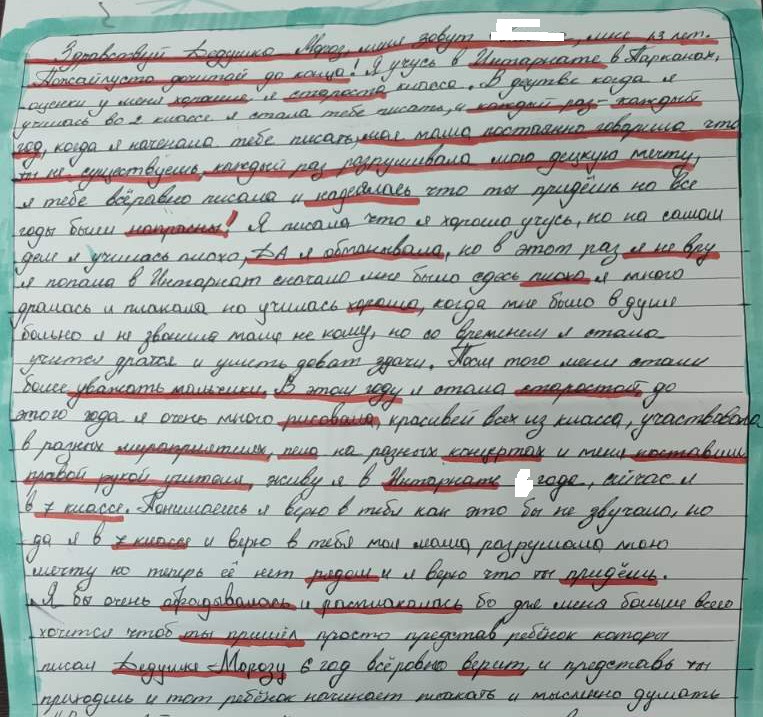 Здравствуй Дедушка Мороз, меня зовут , мне 13 лет.
Пожайлуста дочитай до конца! Я учусь в Интарнате в Парканах,
оценки у меня хорошие я староста класса. В децтве когда я
училась во 2 классе я стала тебе писать, и каждый раз- каждый
год, когда я начинала тебе писать, моя мама постоянно говорила что
ты не существуешь, каждый раз разрушивала мою децкую мечту,
я тебе всёравно писала и надеялась что ты придёшь но все
годы были напрасны! Я писала что я хорошо учусь, но на самом
деле я училась плохо, ДА я обманывала, но в этот раз я не вру
я попала в Интарнат сначало мне было сдесь плохо я много
дралась и плакала но училась хорошо, когда мне было в душе
больно я не звонила маме не кому, но со временем я стала
учится дратся и уметь доват здачи. После того меня стали
более уважать мальчики. В этом году я стала старостой, до
этого года я очень много рисовала, красивей всех из класса, участвовала
в разных мероприятиях, пела на разных концертах и меня поставили
правой рукой учителя, живу я в Интарнате года, сейчас я
в 7 классе. Понимаешь я верю в тебя как это бы не звучало, но
да я в 7 классе и верю в тебя моя мама разрушала мою
мечту но теперь её нет рядом и я верю что ты придёшь.
Я бы очень обрадывалась и расплакалась бо для меня больше всего
хочется чтоб ты пришёл просто представ ребёнок которы
писал Дедушке Морозу 6 год всёровно верит, и представь ты
приходишь и тот ребёнок начинает плакать и мысленно думать